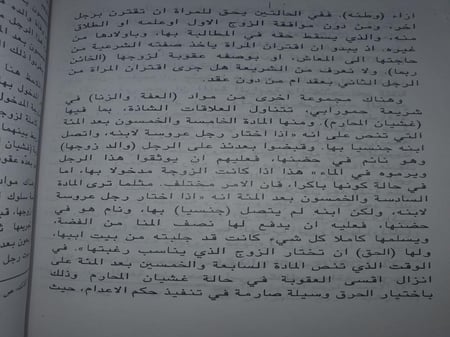 ازاء (وطنه). ففي الحالتين يحق للمرأة ان تقترن برجل
آخر، ومن دون موافقة الزوج الاول اوعلمه او الطلاق
منه، والذي يسقط حقه في المطالبة بها، وباولادها من
غيره. اذ يبدو ان اقتران المرأة يأخذ صفته الشرعية من
حاجتها الى المعاش، او بوصفه عقوبة لزوجها (الخائن
ربما). ولا نعرف من الشريعة هل جرى اقتران المرأة من
الرجل الثاني بعقد ام من دون عقد.
وهناك مجموعة اخرى من مواد (العفة والزنا) في
شريعة حمورابي، تتناول العلاقات الشاذة، بما فيها
(غشيان المحارم). ومنها المادة الخامسة والخمسون بعد المئة
التي تنص على انه «اذا اختار رجل عروسة لابنه، واتصل
ابنه جنسيا بها، وقبضوا بعدئذ على الرجل (والد زوجها)
وهو نائم في حضنها، فعليهم ان يوثقوا هذا الرجل
ويرموه في الماء» هذا اذا كانت الزوجة مدخولا بها، اما
في حالة كونها باكرا، فان الامر مختلف. مثلما ترى المادة
السادسة والخمسون بعد المئة انه «اذا اختار رجل عروسة
لابنه، ولكن ابنه لم يتصل (جنسيا) بها، ونام هو في
حضنها، فعليه ان يدفع لها نصف المنا من الفضة
ويسلمها كاملا كل شيء كانت قد جلبته من بيت ابيها،
ولها (الحق) ان تختار الزوج الذي يناسب رغبتها». في
الوقت الذي تنص المادة السابعة والخمسين بعد المئة على
انزال اقسى العقوبة في حالة غشيان المحارم وذلك
باختيار الحرق وسيلة صارمة في تنفيذ حكم الاعدام، حيث